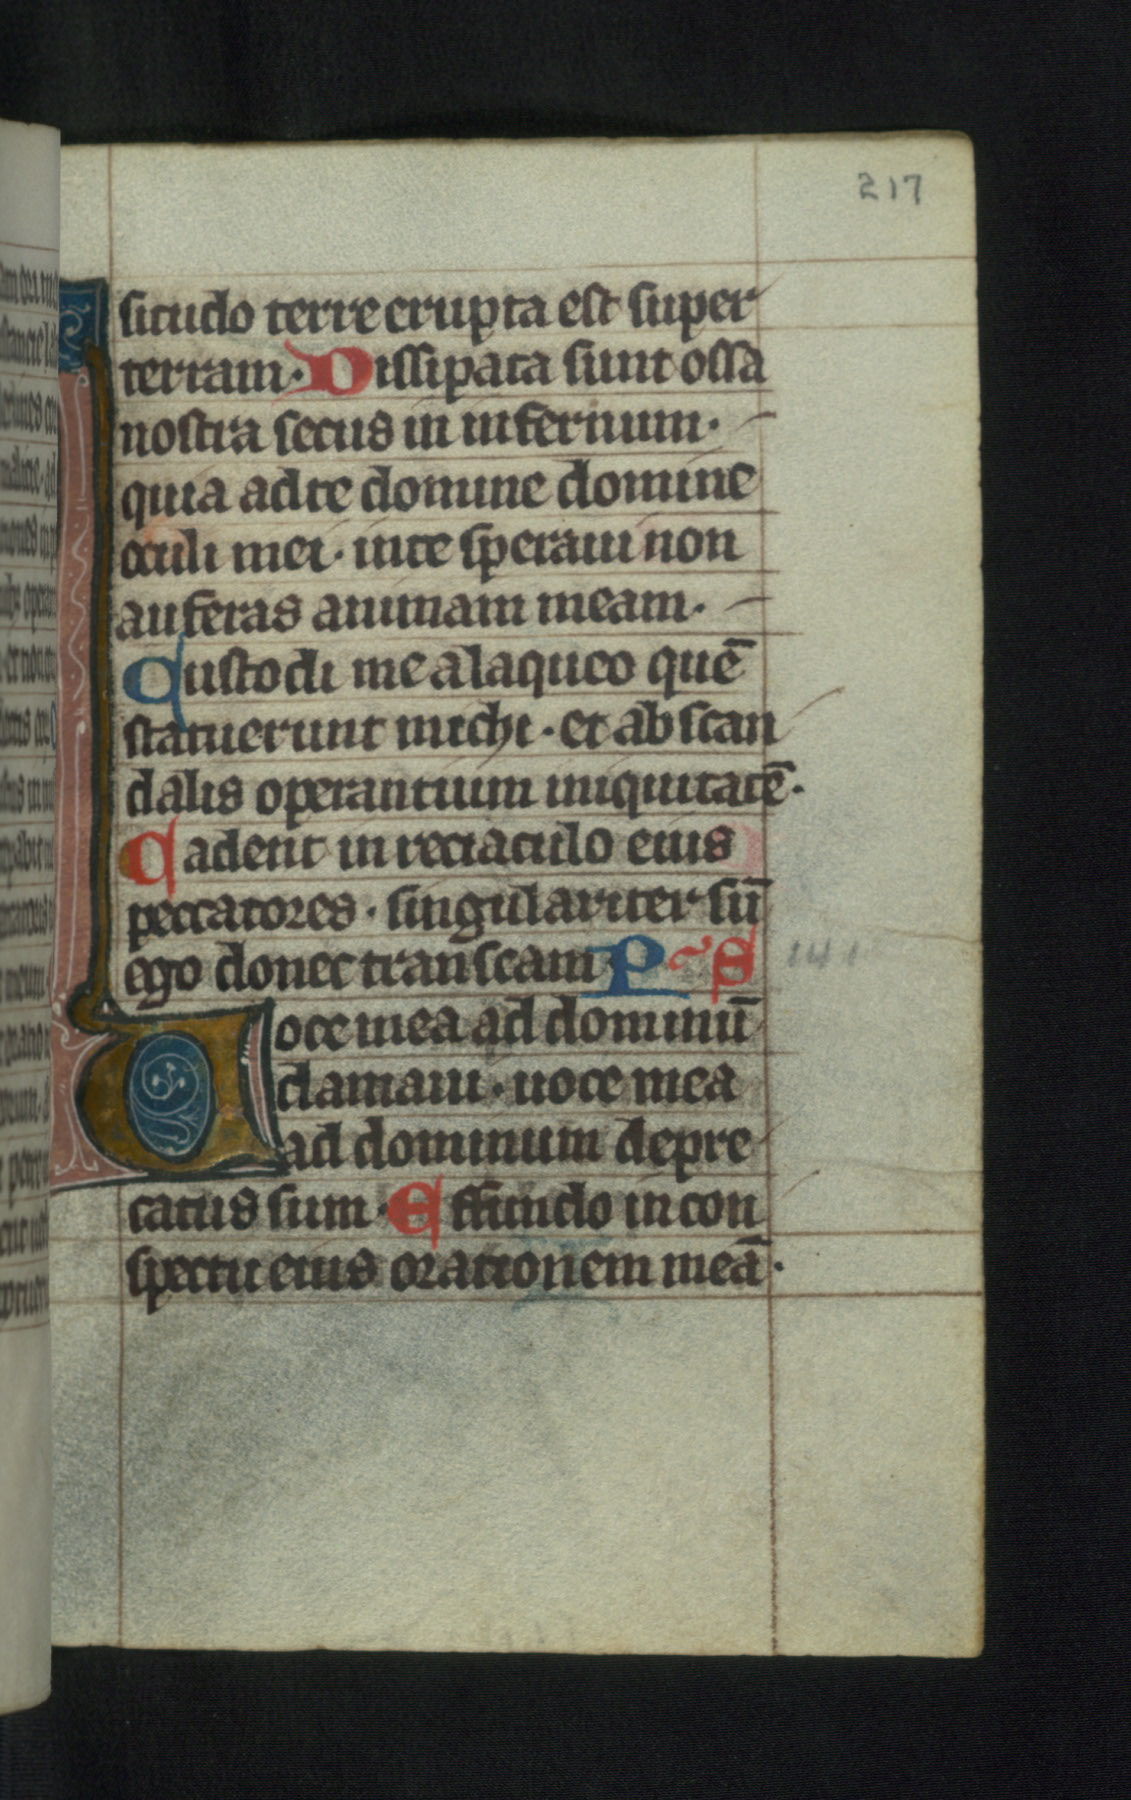 217
situdo terre erupta est super
terram · Dissipata sunt ossa
nostra secus in infernum ·
quia ad te domine domine
oculi mei · in te speraui non
auferas animam meam ·
Custodi me a laqueo quē
statuerunt michi · et ab scan
dalis operantium iniquitatē ·
Cadent in reciaculo eius
peccatores · singulariter sū
ego donec transeam P S
141
Voce mea ad dominū
clamaui · uoce mea
ad dominum depre
catus sum · Effundo in con
spectu eius orationem meā ·